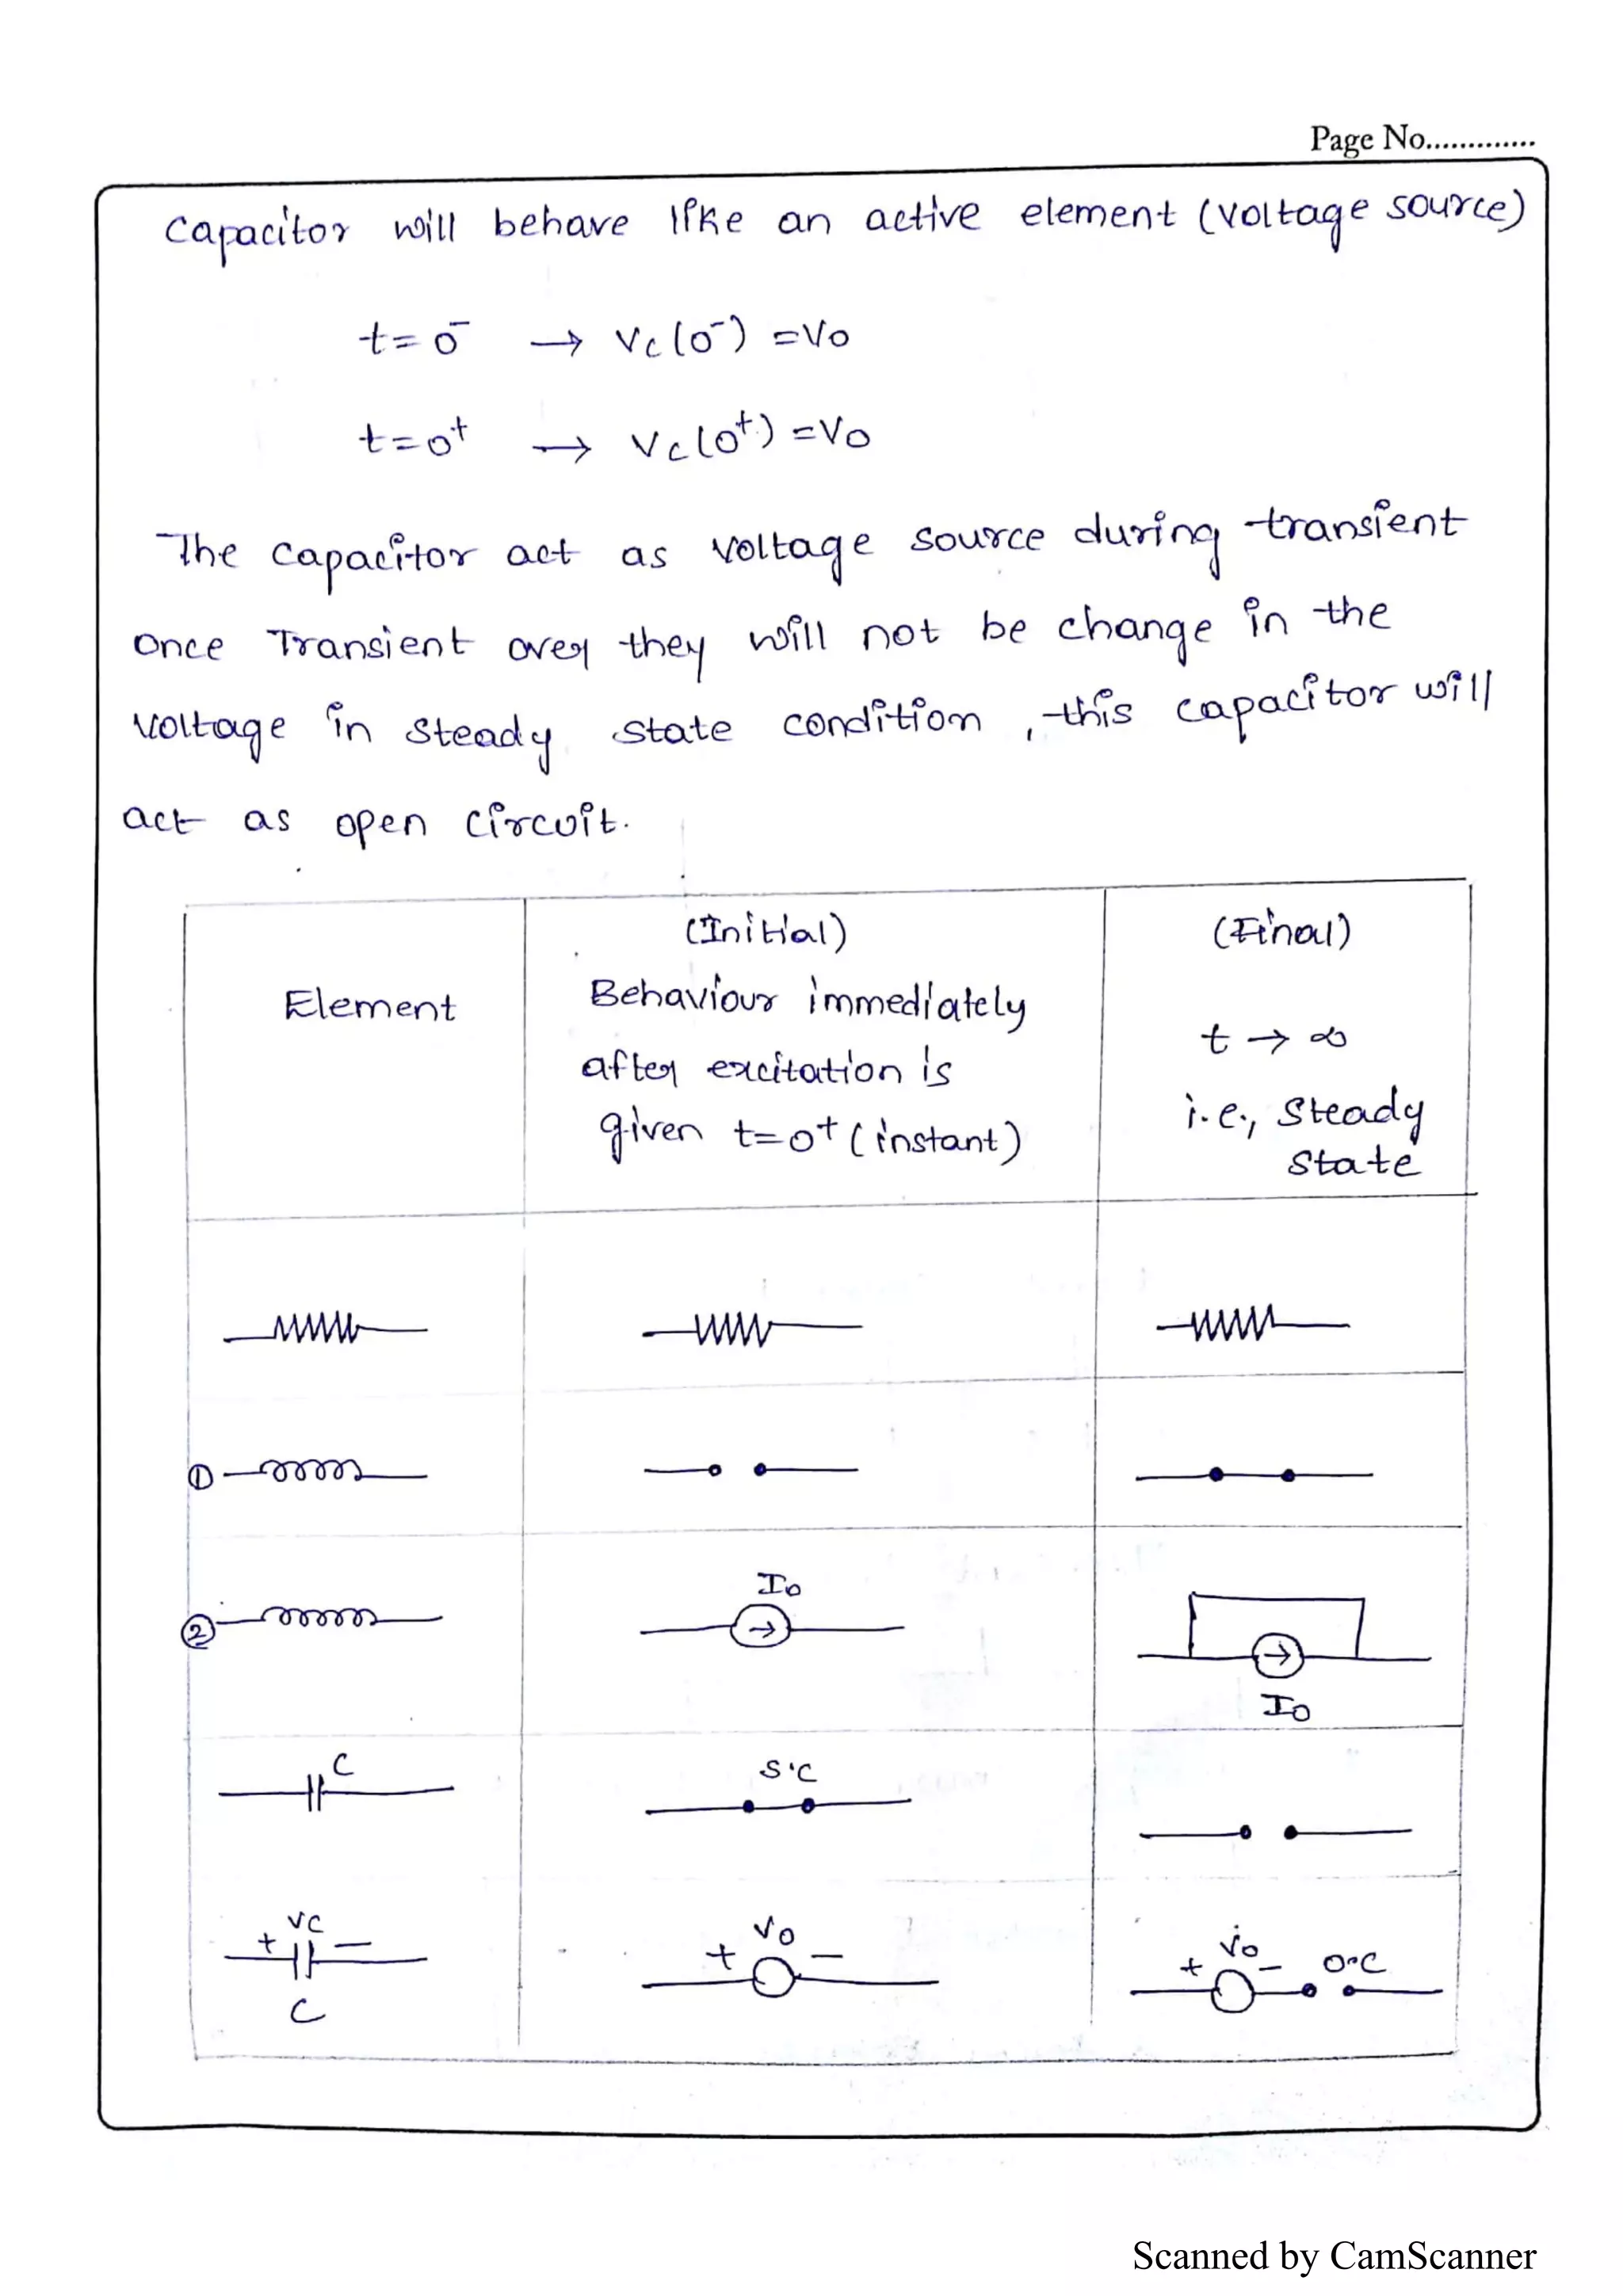 Page No.............
Capacitor will behave like an active element (Voltage source)
t=0⁻ → Vc(0⁻) =V0
t=0⁺ → Vc(0⁺) =V0
The capacitor act as voltage source during transient
once Transient over they will not be change in the
voltage in steady state condition , this capacitor will
act as open circuit.
Element
(Initial)
Behaviour immediately
after excitation is
given t=0⁺ (instant)
(Final)
t → ∞
i.e., Steady
State
①
②
I0
I0
C
S.C
+ VC −
C
+ V0 −
+ V0 − O.C
Scanned by CamScanner